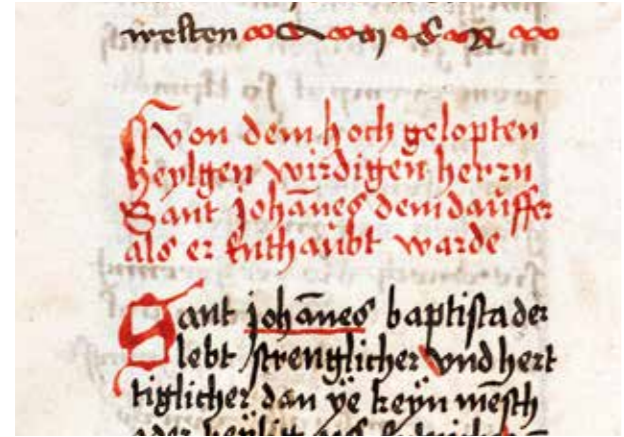 welten
von dem hoch gelopten
heylgen wirdigen herrn
Sant johãnes dem dauffer
als er enthaubt warde
Sant johãnes baptista der
lebt strenglicher vnd hert
tiglicher dan ÿe keyn mẽsch